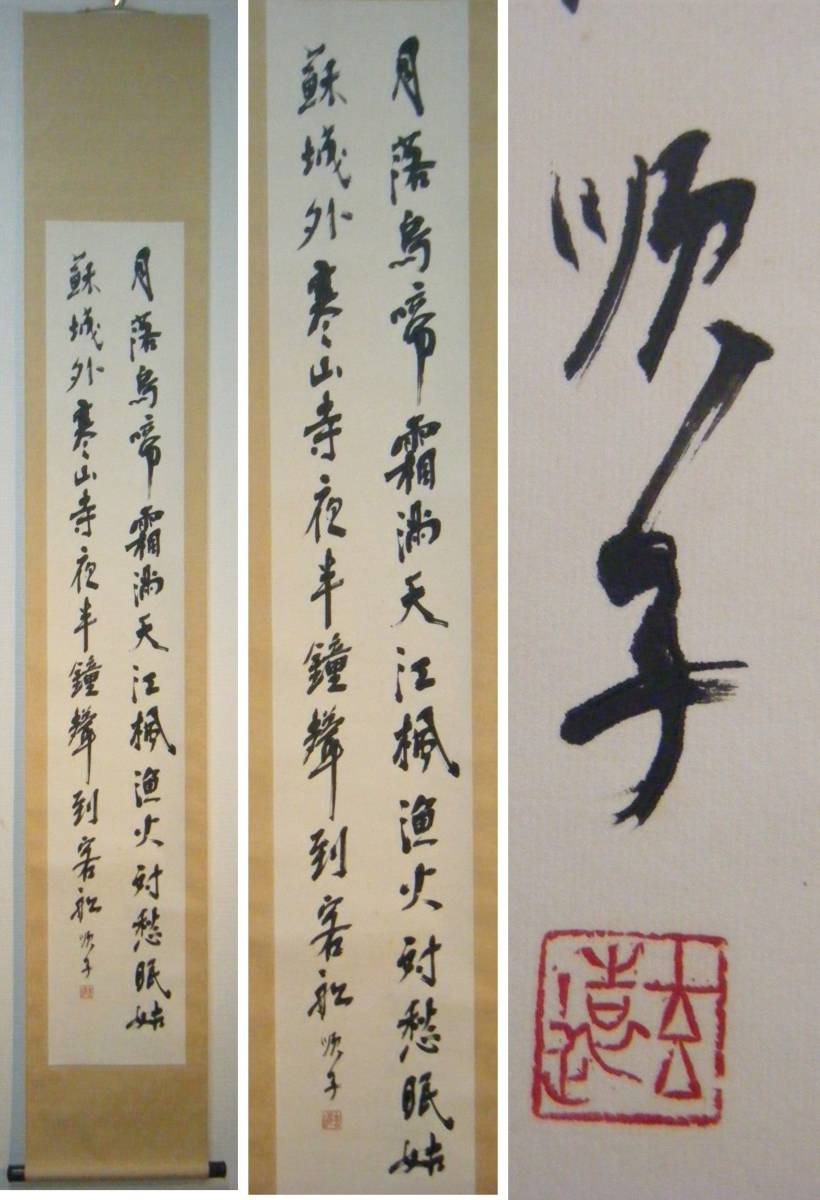 月落烏啼霜満天江楓漁火対愁眠姑
蘇城外寒山寺夜半鐘聲到客船
順子
月落烏啼霜満天江楓漁火対愁眠姑
蘇城外寒山寺夜半鐘聲到客船
順子
順子